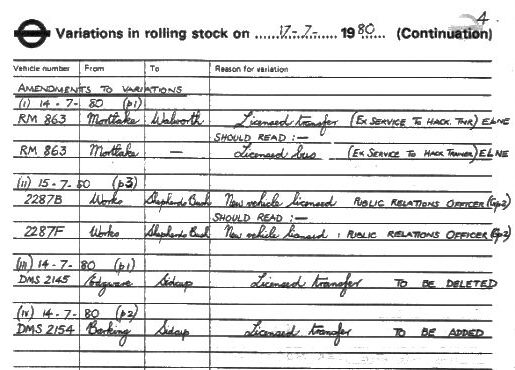 4
Variations in rolling stock on 17-7- 1980 (Continuation)
Vehicle number From To Reason for variation
AMENDMENTS TO VARIATIONS
(i) 14-7-80 (p1)
RM 863 Mortlake Walworth Licensed transfer (EX SERVICE TO HACK. TNR) ELNE
SHOULD READ :—
RM 863 Mortlake — Licensed bus (EX SERVICE TO HACK TRAINER) ELNE
(ii) 15-7-80 (p3)
2287B Works Shepherds Bush New vehicle licensed PUBLIC RELATIONS OFFICER (Gp2)
SHOULD READ :—
2287F Works Shepherds Bush New vehicle licensed : PUBLIC RELATIONS OFFICER (Gp2)
(iii) 14-7-80 (p1)
DMS 2145 Edgware Sidcup Licensed transfer TO BE DELETED
(iv) 14-7-80 (p2)
DMS 2154 Barking Sidcup Licensed transfer TO BE ADDED